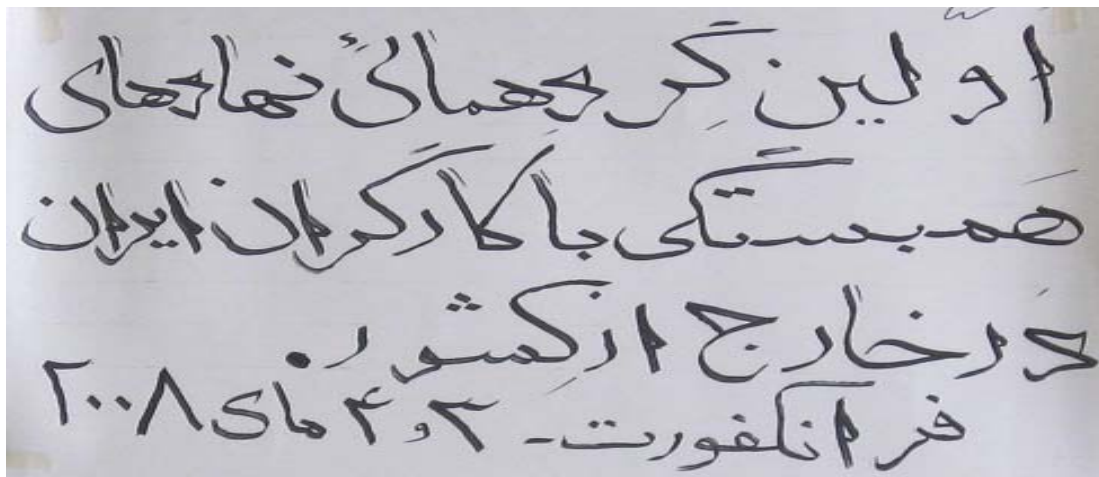 اوّلین گِردهمائیٔ نهادهای
هَمبستگی با کارگران ایران
دَر خارج از کِشور.
فرانکفورت - ۳ و ۴ مای ۲۰۰۸